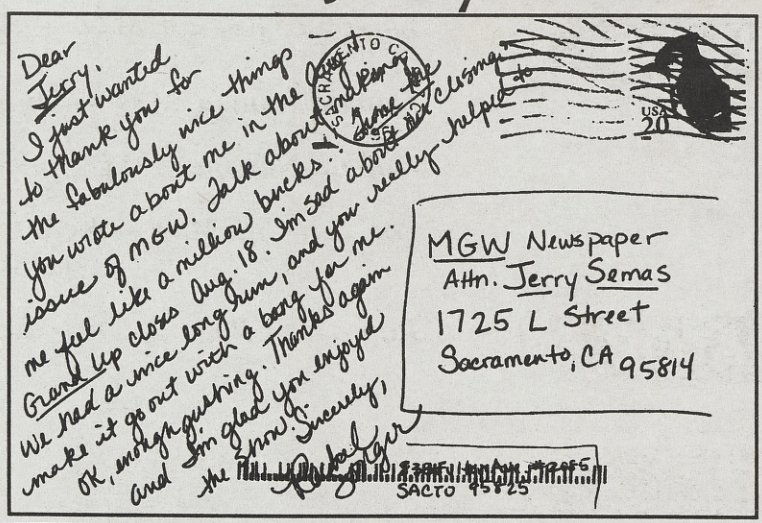 Dear
Jerry,
I just wanted
to thank you for
the fabulously nice things
you wrote about me in the
issue of MGW. Talk about making
me feel like a million bucks.
Grand Up closes Aug. 18. I'm sad about the closing.
We had a nice long run, and you really helped to
make it go out with a bang for me.
OK, enough gushing. Thanks again
and I'm glad you enjoyed
the show. Sincerely,
SACRAMENTO CA
USA
20
MGW Newspaper
Attn. Jerry Semas
1725 L Street
Sacramento, CA 95814
SACTO 95825